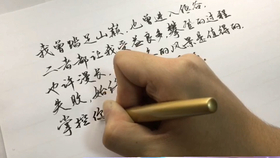 我曾踏足山巅，也曾进入低谷，
二者都让我受益良多，攀登的过程
也许漫长，的风景是值得的，
失败，始
掌控你